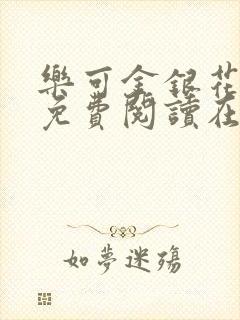 樂可金銀花
免費閱讀在
如夢迷殤